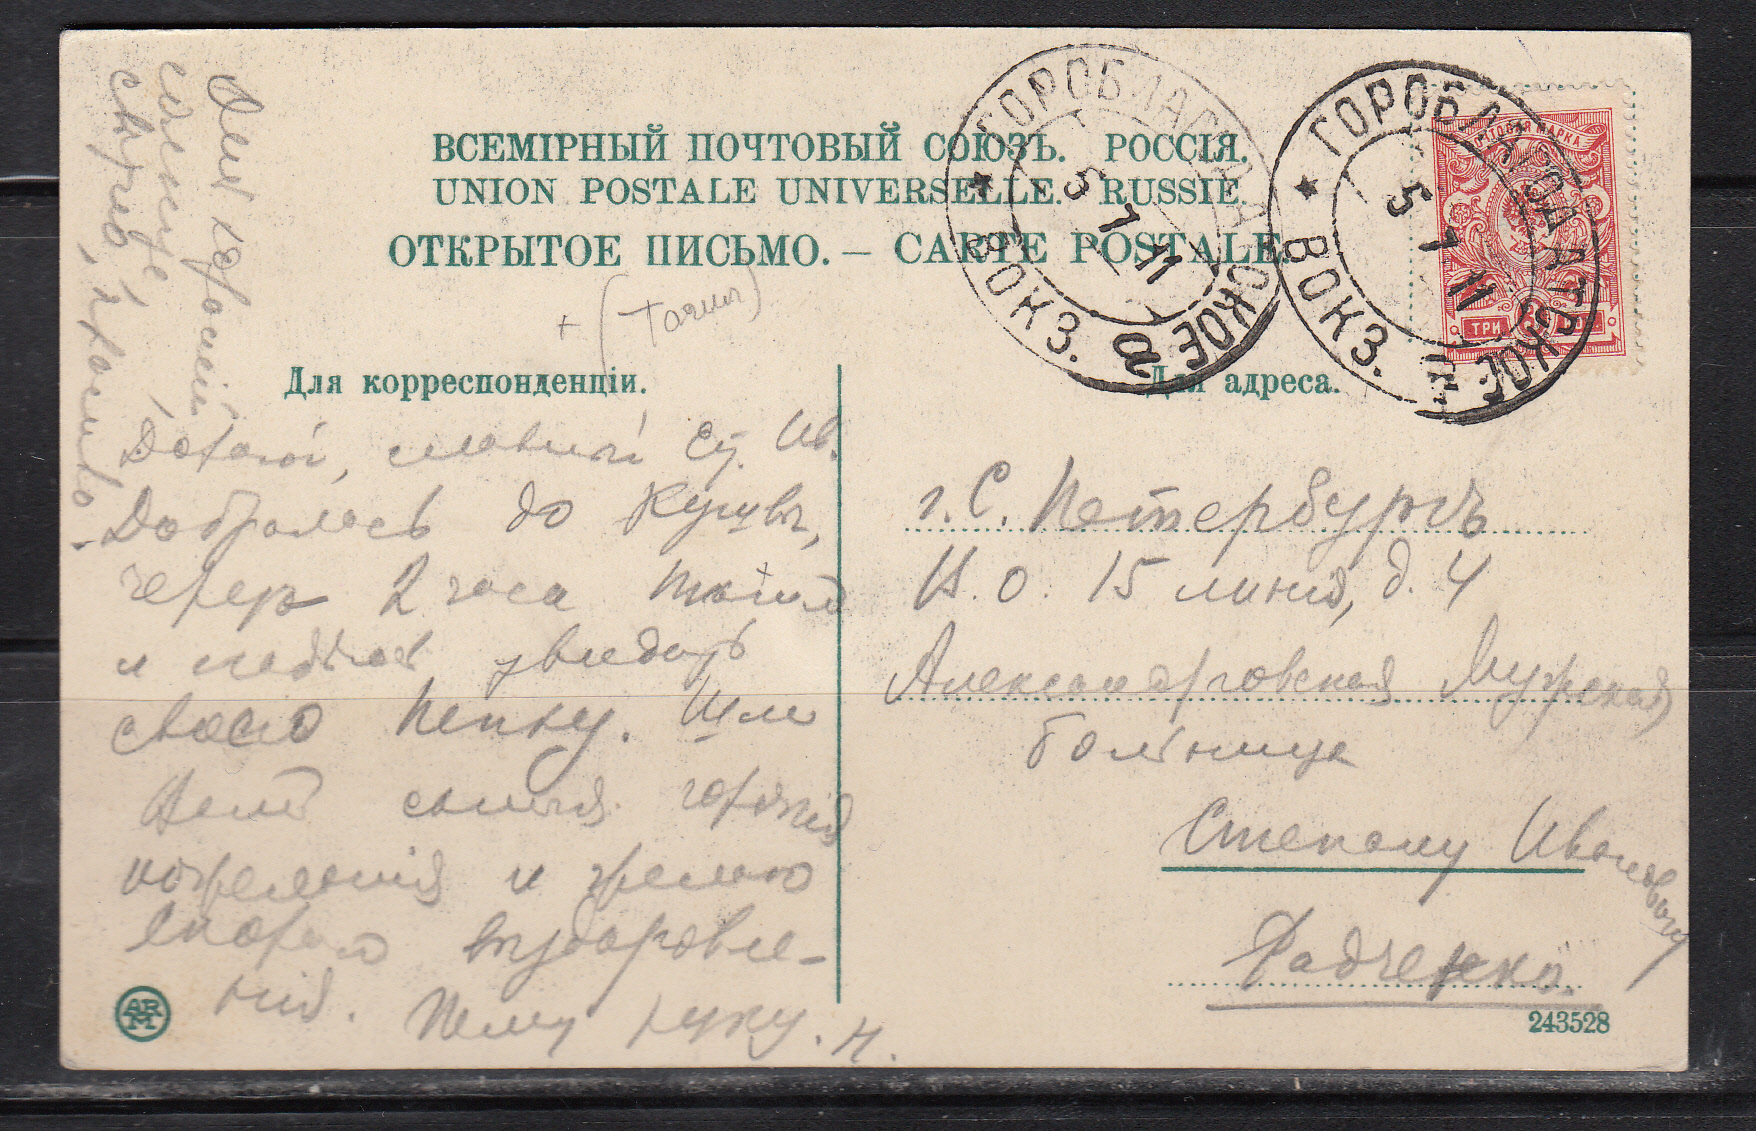 ВСЕМІРНЫЙ ПОЧТОВЫЙ СОЮЗЪ. РОССІЯ.
UNION POSTALE UNIVERSELLE. RUSSIE.
ОТКРЫТОЕ ПИСЬМО. — CARTE POSTALE.
ГОРОБЛАГОДАТСКОЕ ВОКЗ.
5 7 11
а
ГОРОБЛАГОДАТСКОЕ ВОКЗ.
5 7 11
ПОЧТОВАЯ МАРКА
ТРИ 3 КОП.
Для корреспонденціи.
Для адреса.
Дорогой, славный Ст. Ив.
Добралась до Кушвы,
черезъ 2 часа
и увидать
свою Пепку. Шлю
горячія
пожеланія и желаю
скораго выздоровле-
нія. Жму руку. Н.
г. С. Петербургъ
В. О. 15 линія, д. 4
Александровская Мужская
больница
Степану Ивановичу
Радченко.
ARM
243528